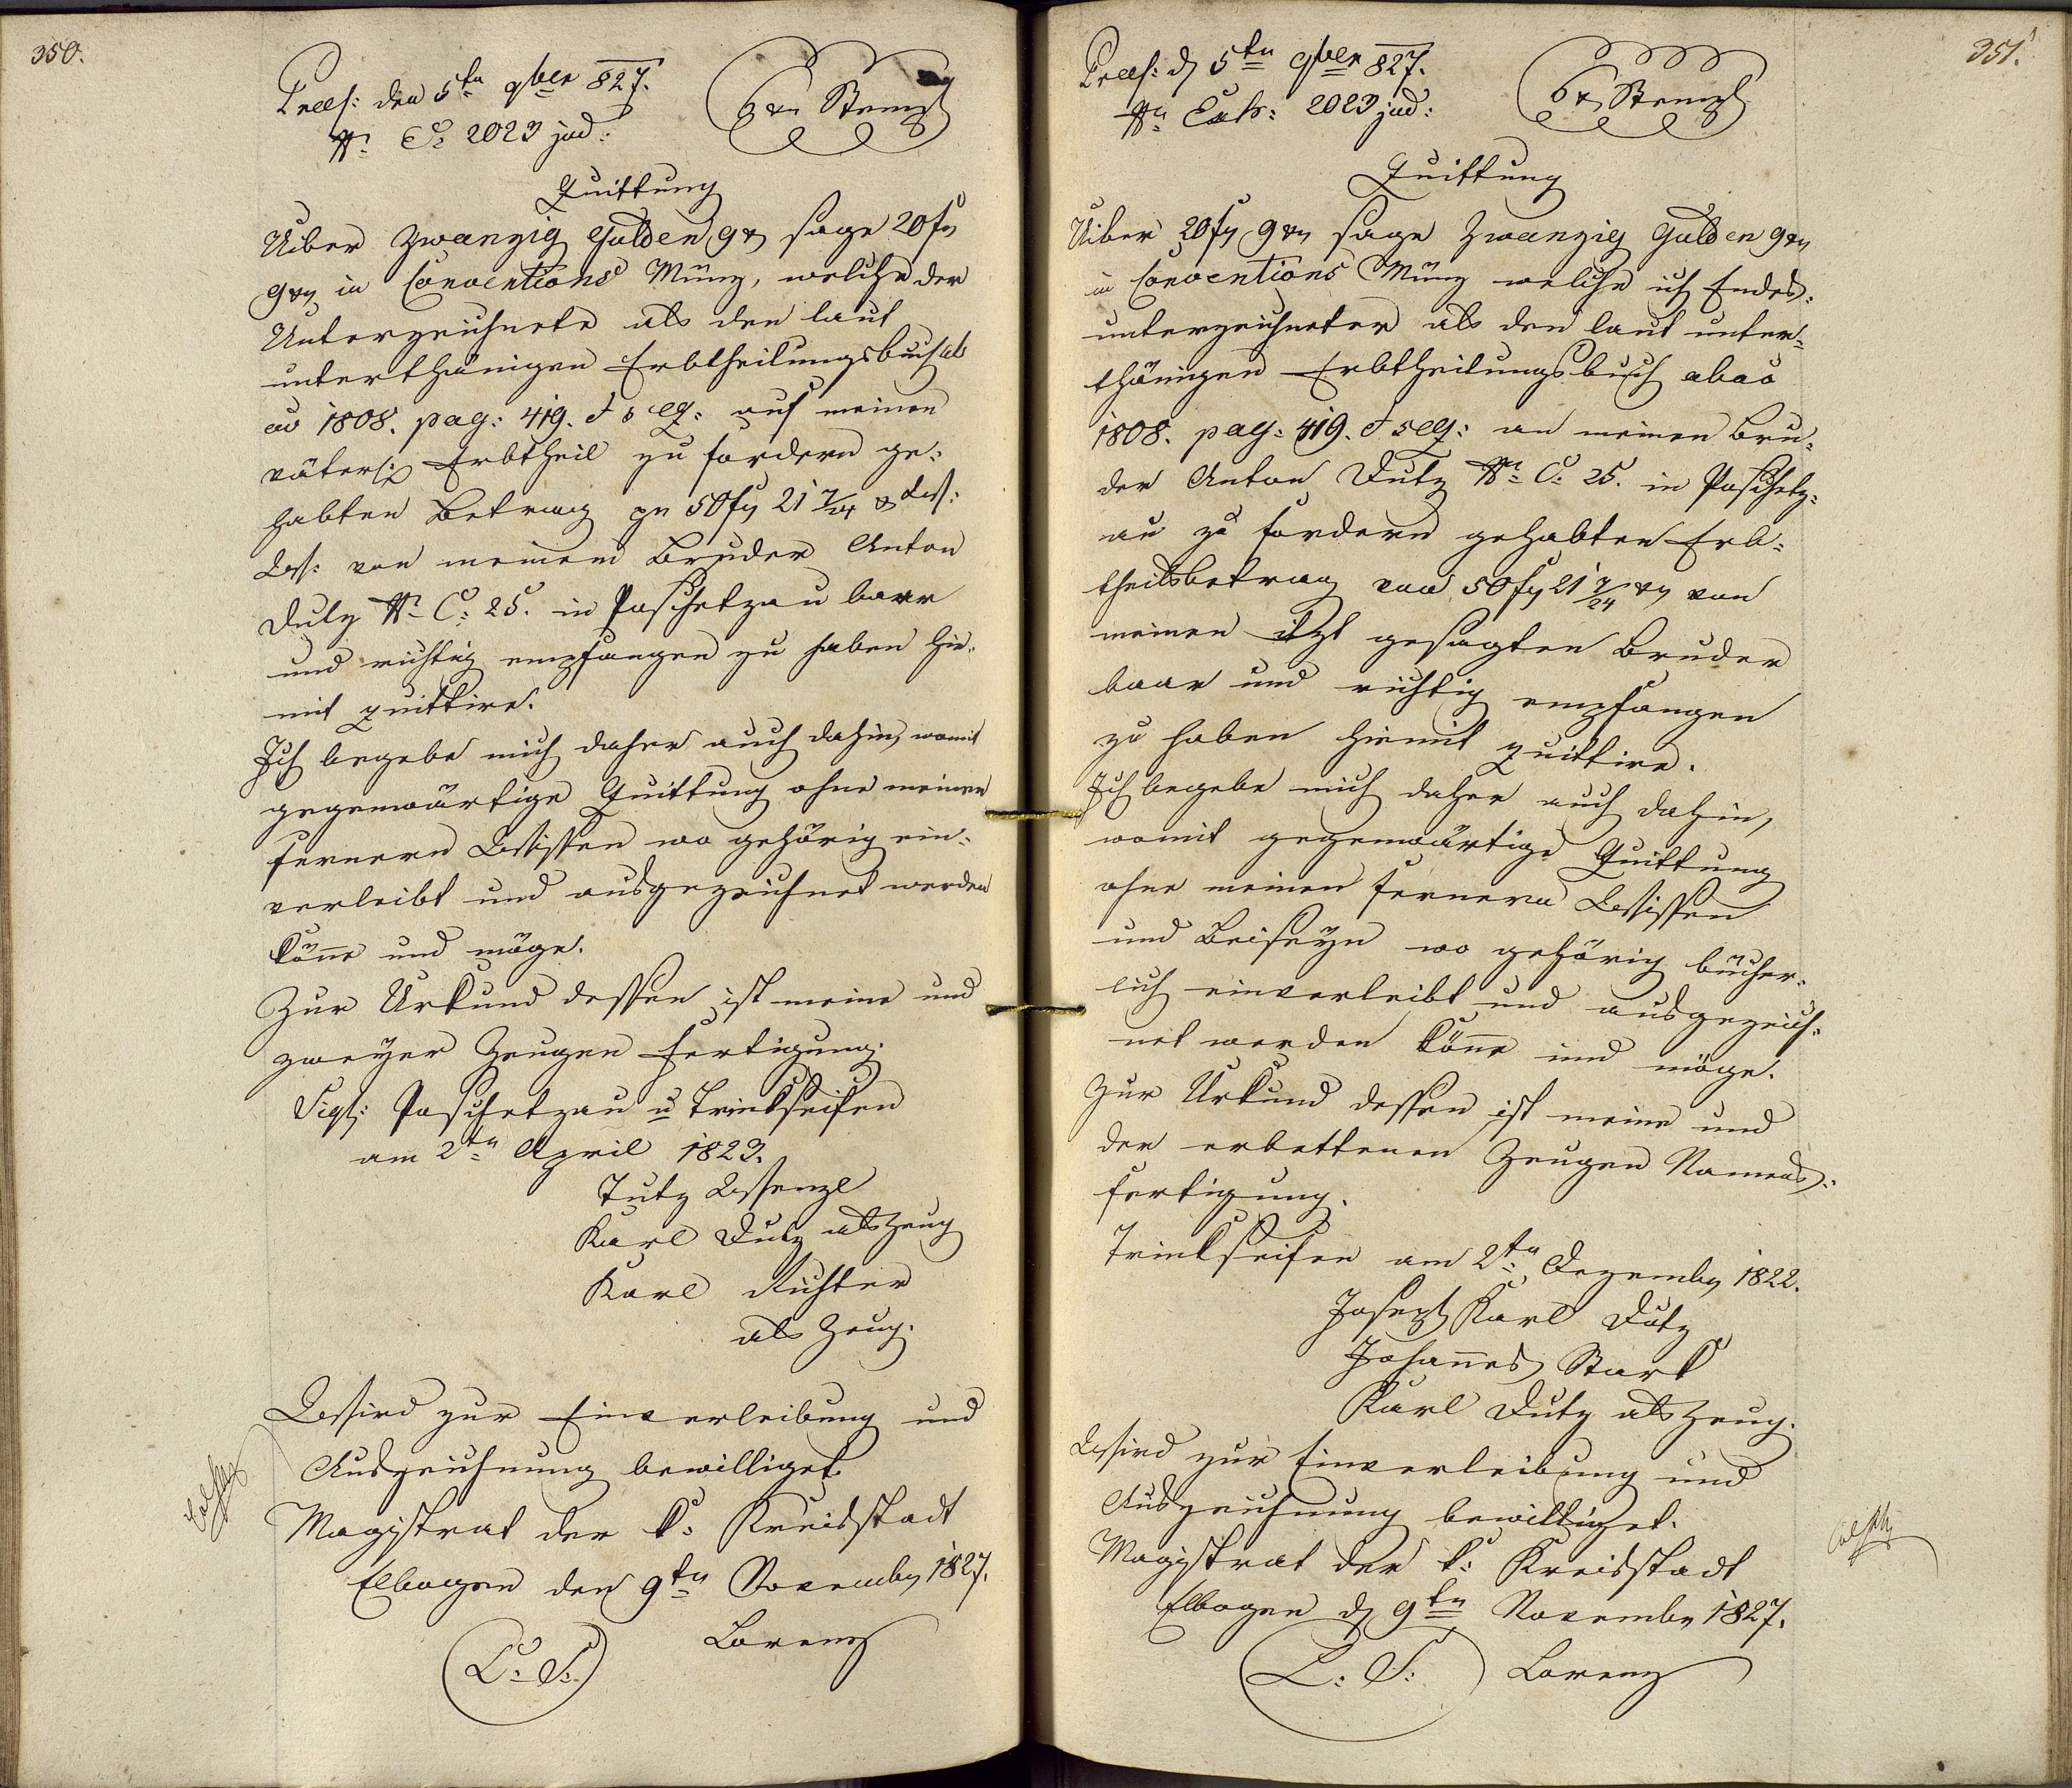 350.
Praes: den 5ten 9ber 827.
Nr. E: 2023 jud:
6 xr Stempl
Quittung
Uiber zwanzig Gulden 9 xr sage 20 fr
9 xr in Conventions Münz, welche der
Unterzeichnete als den laut
unterthänigen Erbtheilungsbuch ab
ao 1808. pag: 419. et seq: auf meinen
väterl: Erbtheil zu fordern ge-
habten Betrag pr 50 fr 21 7/24 xr
von meinem Bruder Anton
Dutz Nr C: 25. in Poschetzau baar
und richtig empfangen zu haben hie-
mit quittire.
Ich begebe mich daher auch dahin, womit
gegenwärtige Quittung ohne meiner
fernern Wissen wo gehörig ein-
verleibt und ausgezeichnet werden
könne und möge.
Zur Urkund dessen ist meine und
zweÿer Zeugen Fertigung.
Sigl: Poschetzau u Trinkseifen
am 2ten April 1823.
Tutz Wenzl
Karl Dutz als Zeug
Karl Richter
als Zeug.
Wird zur Einverleibung und
Auszeichnung bewilliget.
Magistrat der k: Kreisstadt
Elbogen den 9ten Novembr 1827.
L: S:
Lorenz
351.
Praes: d 5ten 9ber 827.
Nr Exh: 2023 jud:
6 xr Stempl
Quittung
Uiber 20 fr 9 xr sage Zwanzig Gulden 9 xr
in Conventions Münz welche ich Endes-
unterzeichneter als den laut unter-
thänigen Erbtheilungsbuch ab ao
1808. pag: 419. et seq: an meinen Bru-
der Anton Dutz Nr C: 25. in Poschetz-
au zu fordern gehabten Erb-
theilsbetrag von 50 fr 21 7/24 xr von
meinen itzt gesagten Bruder
baar und richtig empfangen
zu haben hiemit quittire.
Ich begebe mich daher auch dahin,
womit gegenwärtige Quittung
ohne meinen fernern Wissen
und Beiseÿn wo gehörig bücher-
lich einverleibt und ausgezeich-
net werden könne und möge.
Zur Urkund dessen ist meine und
der erbettenen Zeugen Namens-
fertigung.
Trinkseifen am 2ten Dezembr 1822.
Joseph Karl Dutz
Johannes Stark
Karl Dutz als Zeug.
Wird zur Einverleibung und
Auszeichnung bewilliget.
Magistrat der k: Kreisstadt
Elbogen d 9ten Novembr 1827.
L: S:
Lorenz